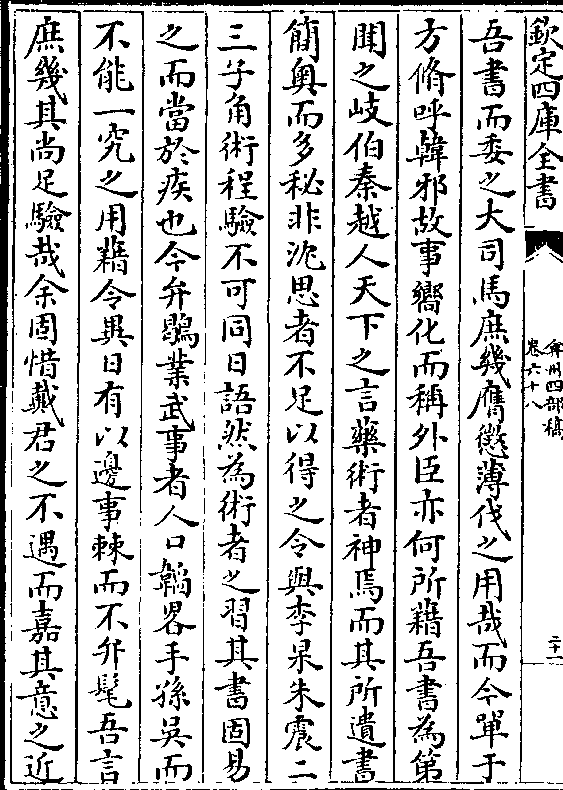 欽定四庫全書
弇州四部稿
卷六十八
二十一
吾書而委之大司馬庶幾膺懲薄伐之用哉而今單于
方脩呼韓邪故事嚮化而稱外臣亦何所藉吾書為第
聞之岐伯秦越人天下之言藥術者神焉而其所遺書
簡奥而多秘非沈思者不足以得之令與李杲朱震二
三子角術程驗不可同日語然為術者之習其書固易
之而當於疾也今弁鶡業武事者人口韜畧手孫吳而
不能一究之用藉令異日有以邊事棘而不弁髦吾言
庶幾其尚足驗哉余固惜戴君之不遇而嘉其意之近